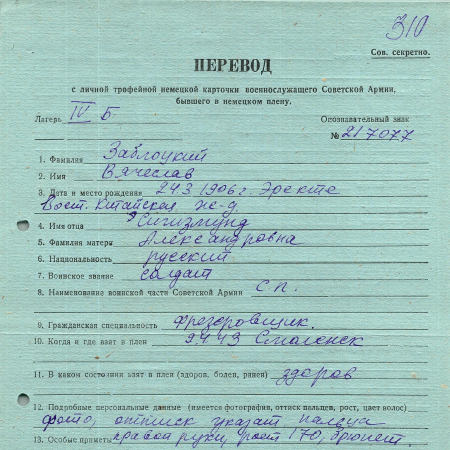 310
Сов. секретно.
ПЕРЕВОД
с личной трофейной немецкой карточки военнослужащего Советской Армии,
бывшего в немецком плену.
Лагерь IV Б
Опознавательный знак
№ 217077
1. Фамилия Заблоцкий
2. Имя Вячеслав
3. Дата и место рождения 24.3 1906 г. Эректе
Вост. Китайская ж-д.
4. Имя отца Сигизмунд
5. Фамилия матери Александровна
6. Национальность русский
7. Воинское звание солдат
8. Наименование воинской части Советской Армии с п.
9. Гражданская специальность Фрезеровщик.
10. Когда и где взят в плен 9.4.43 Смоленск
11. В каком состоянии взят в плен (здоров, болен, ранен) здоров
12. Подробные персональные данные (имеется фотография, оттиск пальцев, рост, цвет волос)
фото, оттиск указат пальца
13. Особые приметы правой руки, рост 170, брюнет.